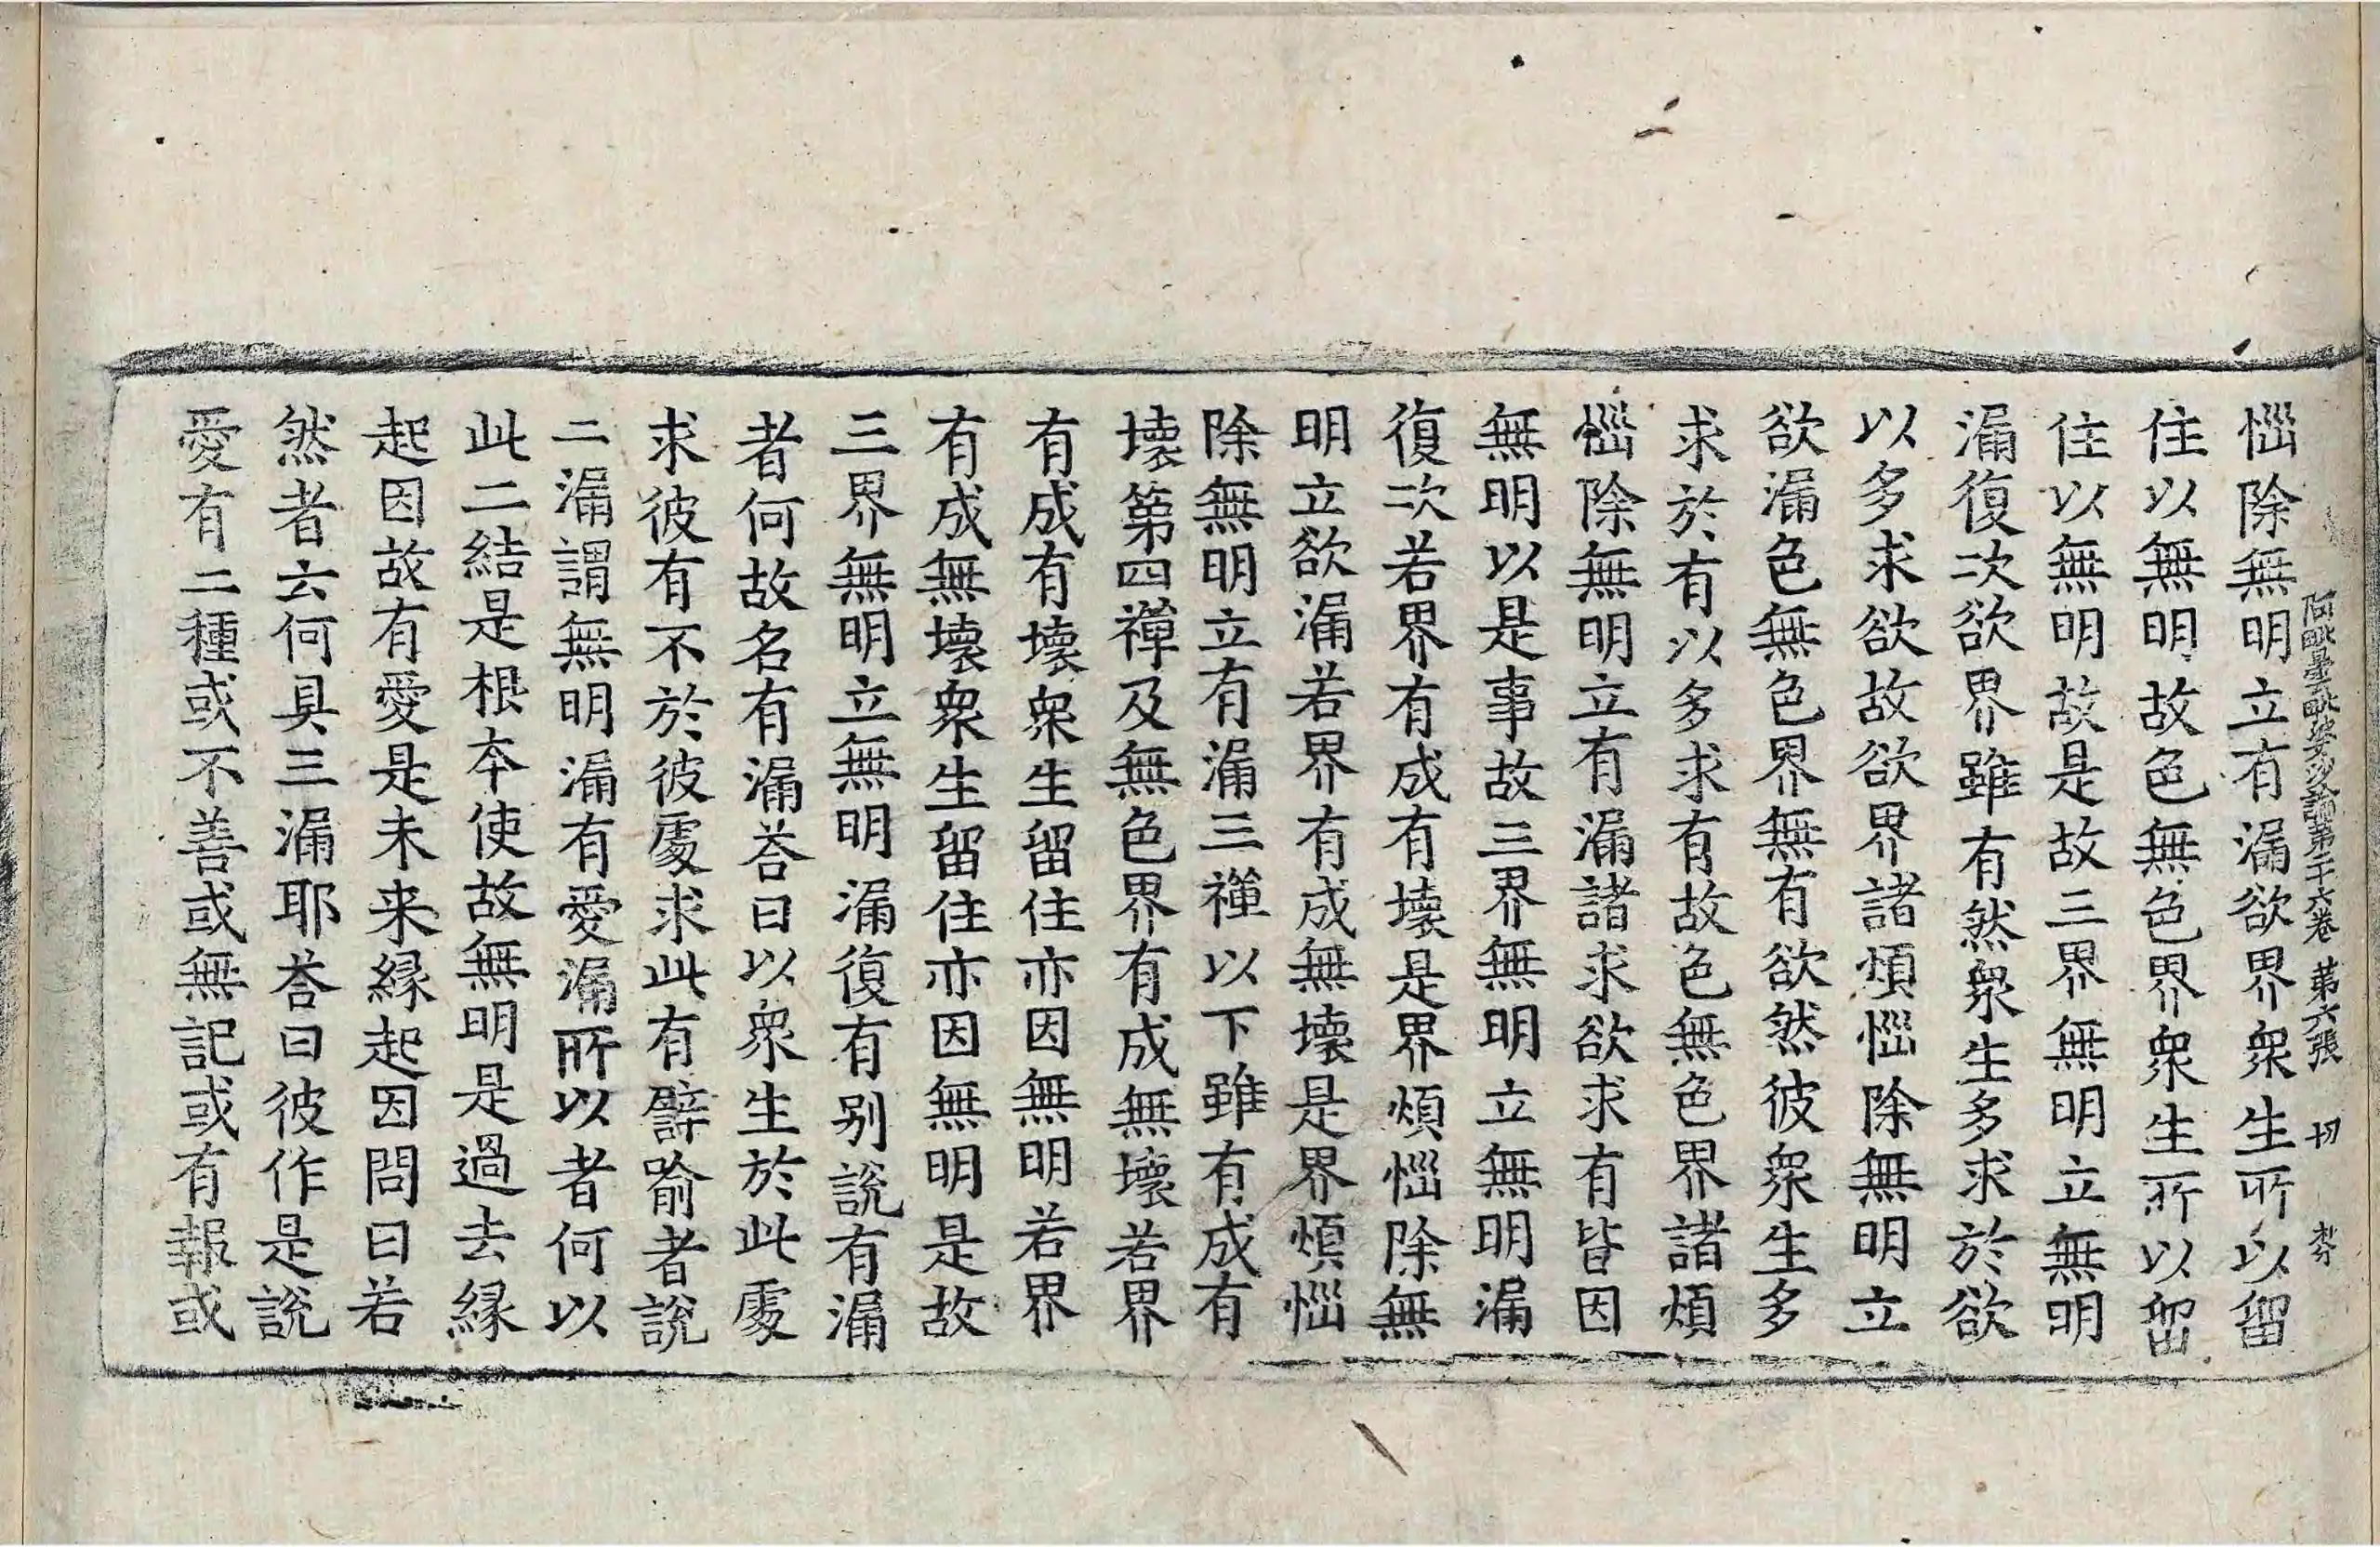 阿毗曇毗婆沙論第二十六卷 第六張 切
惱除無明立有漏欲界衆生所以留
住以無明故色無色界衆生所以留
住以無明故是故三界無明立無明
漏復次欲界雖有然衆生多求於欲
以多求欲故欲界諸煩惱除無明立
欲漏色無色界無有欲然彼衆生多
求於有以多求有故色無色界諸煩
惱除無明立有漏諸求欲求有皆因
無明以是事故三界無明立無明漏
復次若界有成有壞是界煩惱除無
明立欲漏若界有成無壞是界煩惱
除無明立有漏三禪以下雖有成有
壞第四禪及無色界有成無壞若界
有成有壞衆生留住亦因無明若界
有成無壞衆生留住亦因無明是故
三界無明立無明漏復有別說有漏
者何故名有漏荅曰以衆生於此處
求彼有不於彼處求此有譬喻者說
二漏謂無明漏有愛漏所以者何以
此二結是根本使故無明是過去緣
起因故有愛是未来緣起因問曰若
然者云何具三漏耶荅曰彼作是說
愛有二種或不善或無記或有報或